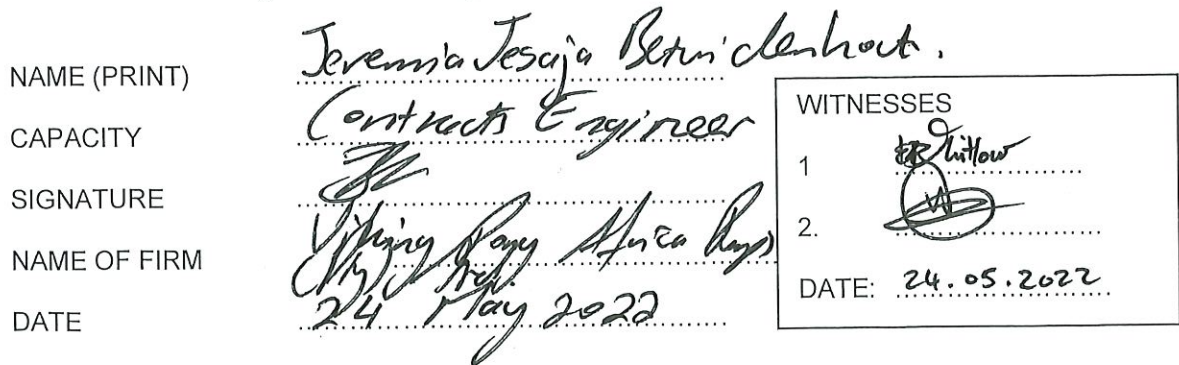 NAME (PRINT) Jeremia Jesaja Bezuidenhout.
CAPACITY Contracts Engineer
SIGNATURE
NAME OF FIRM Viking Pony Africa Pumps
(Pty) Ltd.
DATE 24 May 2022
WITNESSES
1 Whitlow
2.
DATE: 24.05.2022